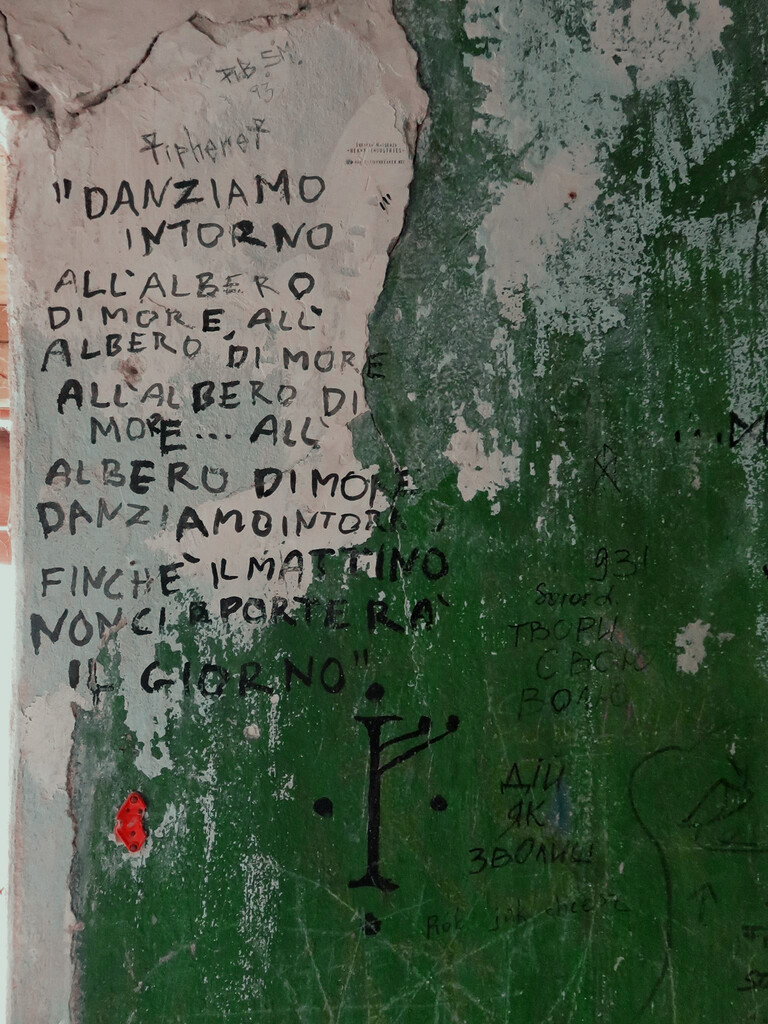 93
Tipheret
"DANZIAMO
INTORNO
ALL'ALBERO
DI MORE, ALL'
ALBERO DI MORE
ALL'ALBERO DI
MORE... ALL'
ALBERO DI MORE
DANZIAMO INTORNO,
FINCHÈ IL MATTINO
NON CI RPORTERÀ
IL GIORNO"
93!
ТВОРИ
СВОЮ
ВОЛЮ
ДІЙ
ЯК
ЗВОЛИШ